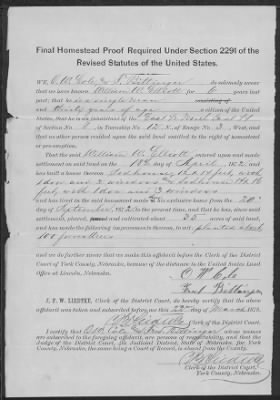 Final Homestead Proof Required Under Section 2291 of the
Revised Statutes of the United States.
WE, O. W. Cole & F. Bittinger do solemnly swear
that we have known William W. Elliott for 6 years
past; that he is a single man consisting of
and thirty years of age a citizen of the United
States; that he is an inhabitant of the East ½ North East ¼
of Section No. 8 in Township No. 12 N, of Range No. 3, West, and
that no other person resided upon the said land entitled to the right of Homestead
or pre-emption.
That the said William W. Elliott entered upon and made
settlement on said land on the 18th day of April, 1872, and has built a
house thereon
and has lived in the said house and made it his exclusive home from the 20th
day of September, 1872 to the present time, and that he has, since said
settlement, plowed, and cultivated about 25 acres of said land,
and has made the following improvements thereon, to wit: planted about
100 forest trees
and we do further swear that we make this affidavit before the Clerk of the District
Court of York County, Nebraska, because of the distance to the United States Land
Office at Lincoln, Nebraska.
O W Cole
Fred Bittinger
Clerk of the District Court, do hereby certify that the above
affidavit was taken and subscribed before me this 22nd day of March, 1878.
Clerk of the District Court.
I certify that O. W. Cole & Fred Bittinger whose names
are subscribed to the foregoing affidavit, are persons of respectability, and that the
Judge of the District Court,
Clerk of the District Court,
York County, Nebraska.